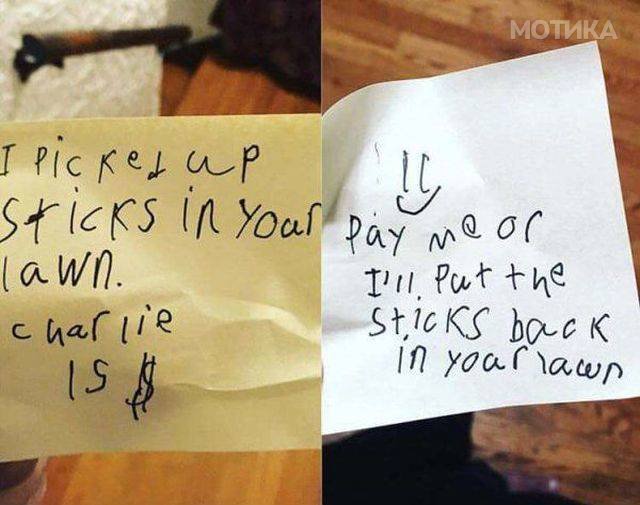 I Picked up
sticks in your
lawn.
Charlie
15 $
МОТИКА
Pay me or
I'll Put the
sticks back
in your lawn